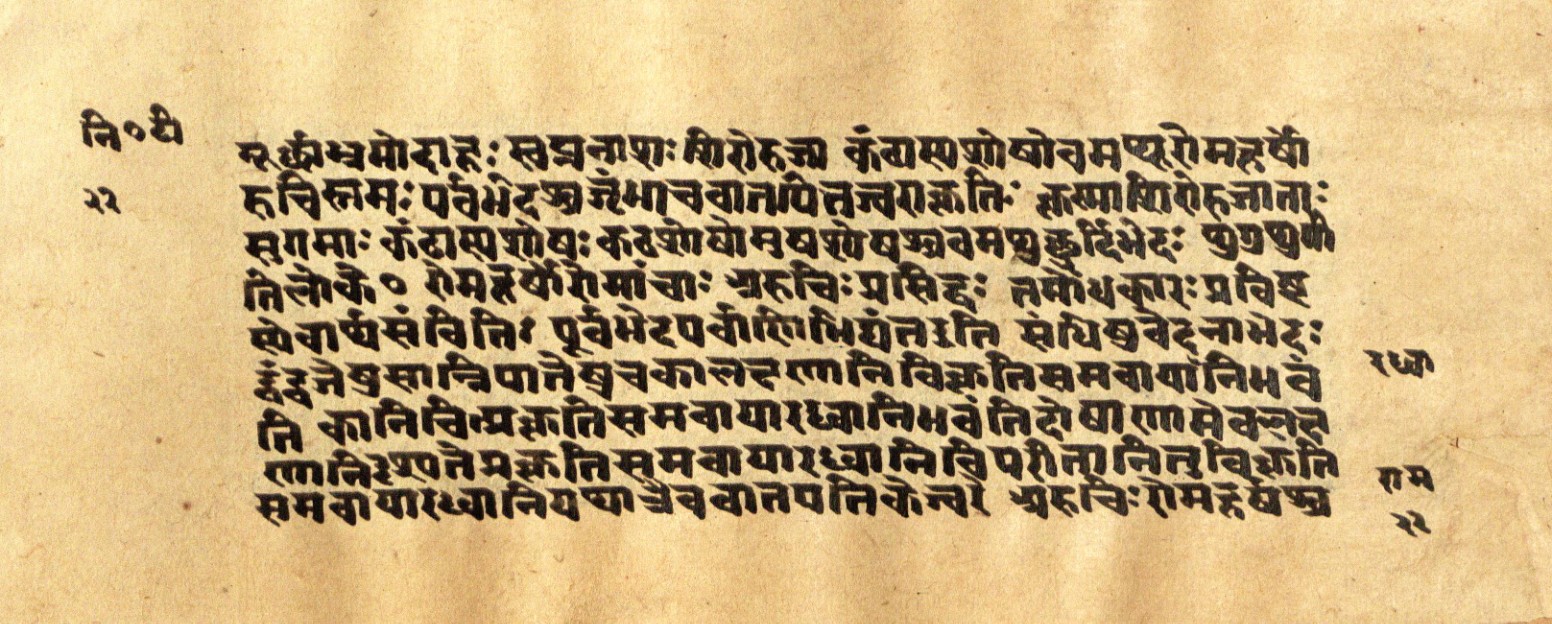 नि॰टी
२२
मूर्छाभ्रमोदाहः स्वप्ननाशः शिरोरुजा कंठास्यशोषोवमथूरोमहर्षो
रुचिस्तमः पर्वभेदश्चजृंभाचवातपित्तज्वराकृतिः भ्रमशिरोरुजातः
सुगमाः कंठास्यशोषः कठशोषोमुषशोषश्चवमथुछर्दिर्भेदः
तिलोके॰ रोमहर्षोरोमांचाः अरुचिः प्रसिद्धः तमोंधकारः प्रविष्ट
स्येवार्थसंचित्तिः पूर्वभेदपर्वाणिभिद्यंतइति संधिषुवेदनाभेदः
द्वंद्वजेषुसान्निपातेषुचकालक्षणानिविकृतिसमवायार्निभवं
रब्धा
ति कानिचित्प्रकृतिसमवायारब्धानिभवंतिदोषाणामेवलक्ष
णानिदृश्यतेप्रकृतिसमवायारब्धानिविपरीतानितुविकृति
समवायारब्धानियथात्रैववातपतिकेज्वरे अरुचिः रोमहर्षश्च
राम
२२